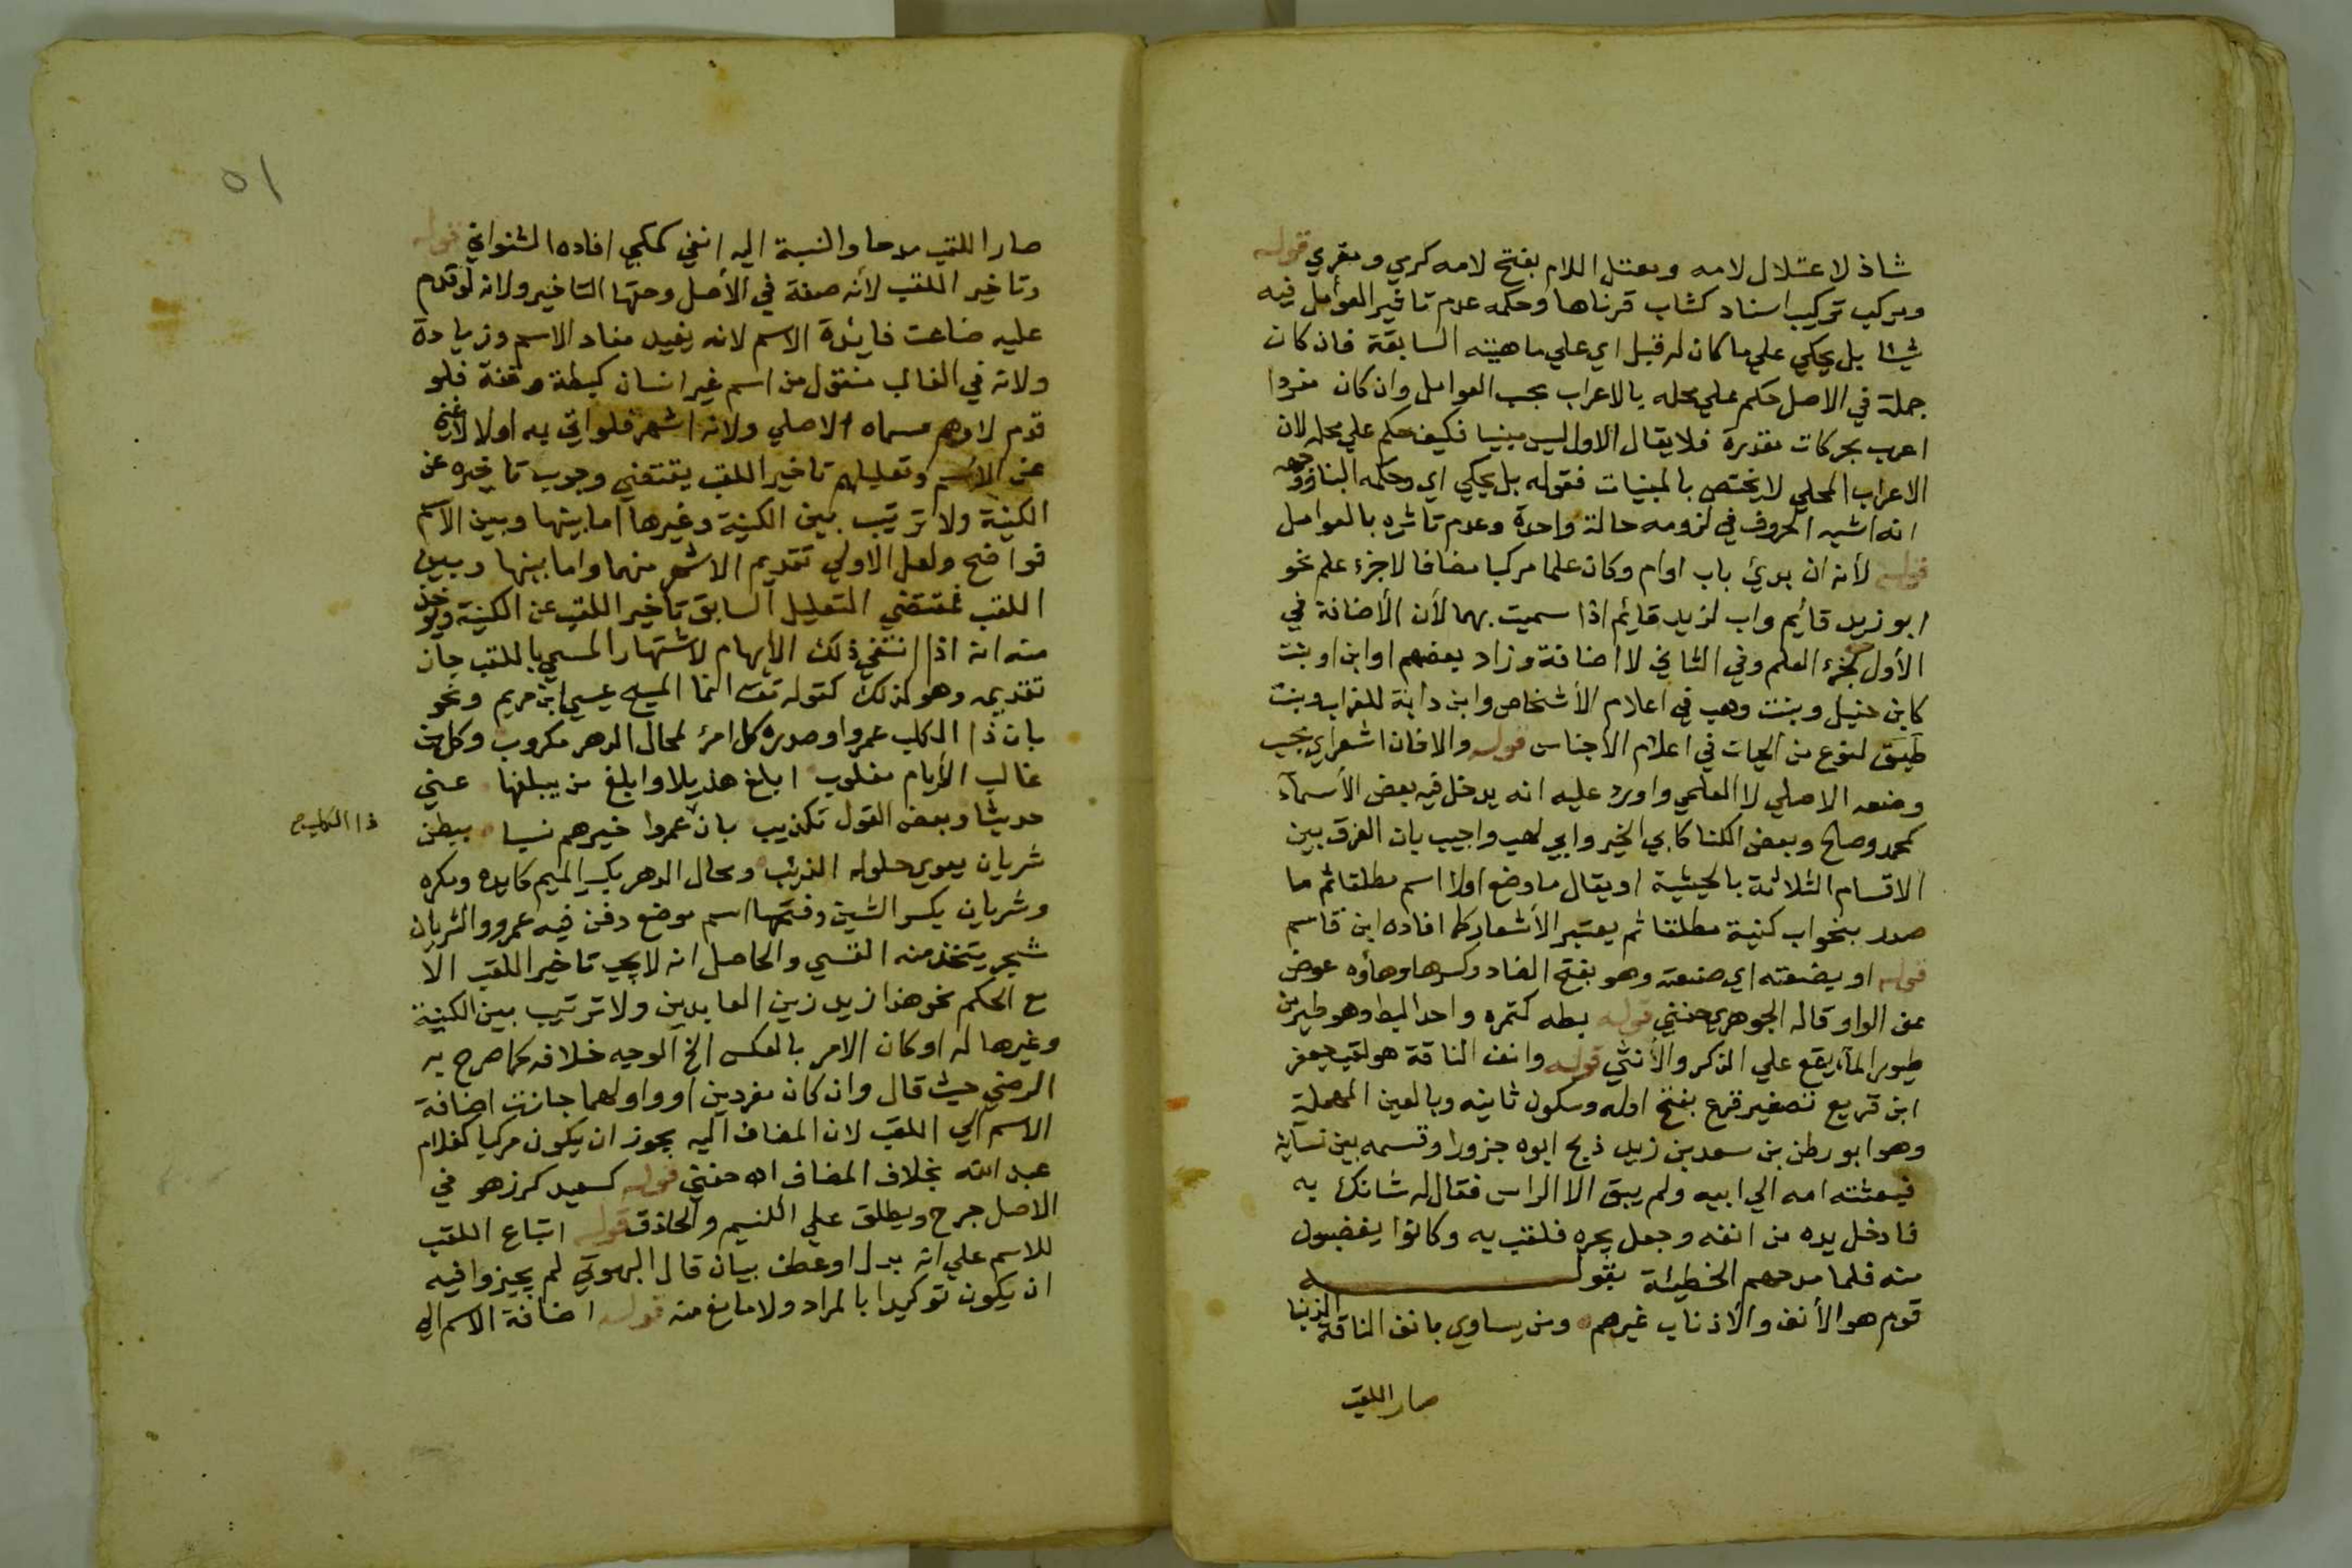 شاذ لاعتلال لامه وبمعتل اللام بفتح لامه كرمي ومغري قوله
ومركب تركيب اسناد كشاب قرناها وحكمه عدم تاثير العوامل فيه
شيئا بل يحكي علي ما كان له قبل اي علي ماهيته السابقة فان كان
جملة في الاصل حكم علي محله بالاعراب بحسب العوامل وان كان مفردا
اعرب بحركات مقدرة فلا يقال الاول ليس مبنيا فكيف حكم علي محله لان
الاعراب المحلي لا يختص بالمبنيات فقوله بل يحكي اي وحكمه البنا ووجهه
انه اشبه الحروف في لزومه حالة واحدة وعدم تاثره بالعوامل
قوله لأنه ان بدئ باب اوام وكان علما مركبا مضافا لا جزء علم نحو
ابو زيد قايم واب لزيد قايم اذا سميت بهما لأن الأضافة في
الأول كجزء العلم وفي الثاني لا اضافة وزاد بعضهم او ابن او بنت
كابن حنبل وبنت وهب في اعلام الأشخاص وابن داية للغراب وبنت
طبق لنوع من الحيات في اعلام الأجناس قوله والا فان اشعر اي بحسب
وضعه الاصلي لا العلمي واورد عليه انه يدخل فيه بعض الأسماء
كمحمد وصالح وبعض الكنا كابي الخير وابي لهب واجيب بان الفرق بين
الاقسام الثلاثة بالحيثية او يقال ما وضع اولا اسم مطلقا ثم ما
صدر بنحو اب كنية مطلقا ثم يعتبر الأشعار كما افاده ابن قاسم
قوله او بضعته اي صنعته وهو بفتح الضاد وكسرها وهاؤه عوض
عن الواو قاله الجوهري حفني قوله بطه كتمره واحد البط وهو طير من
طيور المآء يقع علي الذكر والأنثي قوله وانف الناقة هو لقب جعفر
ابن قريع تصغير قرع بفتح اوله وسكون ثانيه وبالعين المهملة
وهو ابو بطن من سعد بن زيد ذبح ابوه جزورا وقسمه بين نسآئه
فبعثته امه الي ابيه ولم يبق الا الراس فقال له شانك به
فادخل يده من انفه وجعل يجره فلقب به وكانوا يغضبون
منه فلما مدحهم الحطيئة بقوله
قوم هم الأنف والأذناب غيرهم ومن يساوي بانف الناقة الذنبا
صار اللقب
٥١
صار اللقب مدحا والنسبة اليه انفي كمكي افاده الشنواني قوله
وتاخير اللقب لأنه صفة في الأصل وحقها التاخير ولانه لو قدم
عليه ضاعت فايدة الاسم لانه يفيد مفاد الاسم وزيادة
ولانه في الغالب منقول من اسم غير انسان كبطة وقفة فلو
قدم لاوهم مسماه الاصلي ولانه اشهر فلو اتي به اولا لاغني
عن الاسم وتعليلهم تاخير اللقب يقتضي وجوب تاخيره عن
الكنية ولا ترتيب بين الكنية وغيرها اما بينها وبين الاسم
فواضح ولعل الاولي تقديم الاشهر منهما واما بينها وبين
اللقب فمقتضي التعليل السابق تاخير اللقب عن الكنية ويؤخذ
منه انه اذا انتفي ذلك الأيهام لاشتهار المسمي باللقب جاز
تقديمه وهو كذلك كقوله تعـ انما المسيح عيسي ابن مريم ونحو
بان ذا الكلب عمروا وصدره كل امرئ لمحال الدهر مكروب وكل من
غالب الأيام مغلوب ابلغ هذيلا وابلغ من يبلغها عني
حديثا وبعض القول تكذيب بان عمروا خيرهم نسبا ببطن
ذا الكلب صح
شريان يعوي حوله الذئب ومحال الدهر بكسر الميم كايده ومكره
وشريان بكسر الشين وفتحها اسم موضع دفن فيه عمرو والشريان
شجر يتخذ منه القسي والحاصل انه لا يجب تاخير اللقب الا
مع الحكم نحو هذا زيد زين العابدين ولا ترتيب بين الكنية
وغيرها له او كان الامر بالعكس الخ الوجيه خلافه كما صرح به
الرضي حيث قال وان كان مفردين او واولهما جازت اضافة
الاسم الي اللقب لان المضاف اليه يجوز ان يكون مركبا كغلام
عبد الله بخلاف المضاف اهـ حفني قوله كسعيد كرز هو في
الاصل جرح ويطلق علي اللئيم والحاذق قوله اتباع اللقب
للاسم علي انه بدل او عطف بيان قال البهوتي لم يجيزوا فيه
ان يكون توكيدا بالمراد ولا مانع منه قوله اضافة الاسم الي